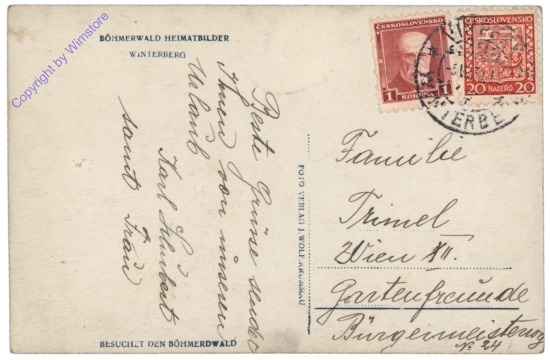 Copyright by Wimstore
BÖHMERWALD HEIMATBILDER
WINTERBERG
Beste Grüße sendet
Ihnen von unserem
Urlaub
Karl Schubert
samt Frau
BESUCHET DEN BÖHMERWALD
FOTO VERLAG J. WOLF, KRUMMAU
ČESKOSLOVENSKO
1 KORUNA
ČESKOSLOVENSKO
20 HALÉŘŮ 20
TERBE
Familie
Trimel
Wien XII.
Gartenfreunde
Bürgermeisterweg
No 24